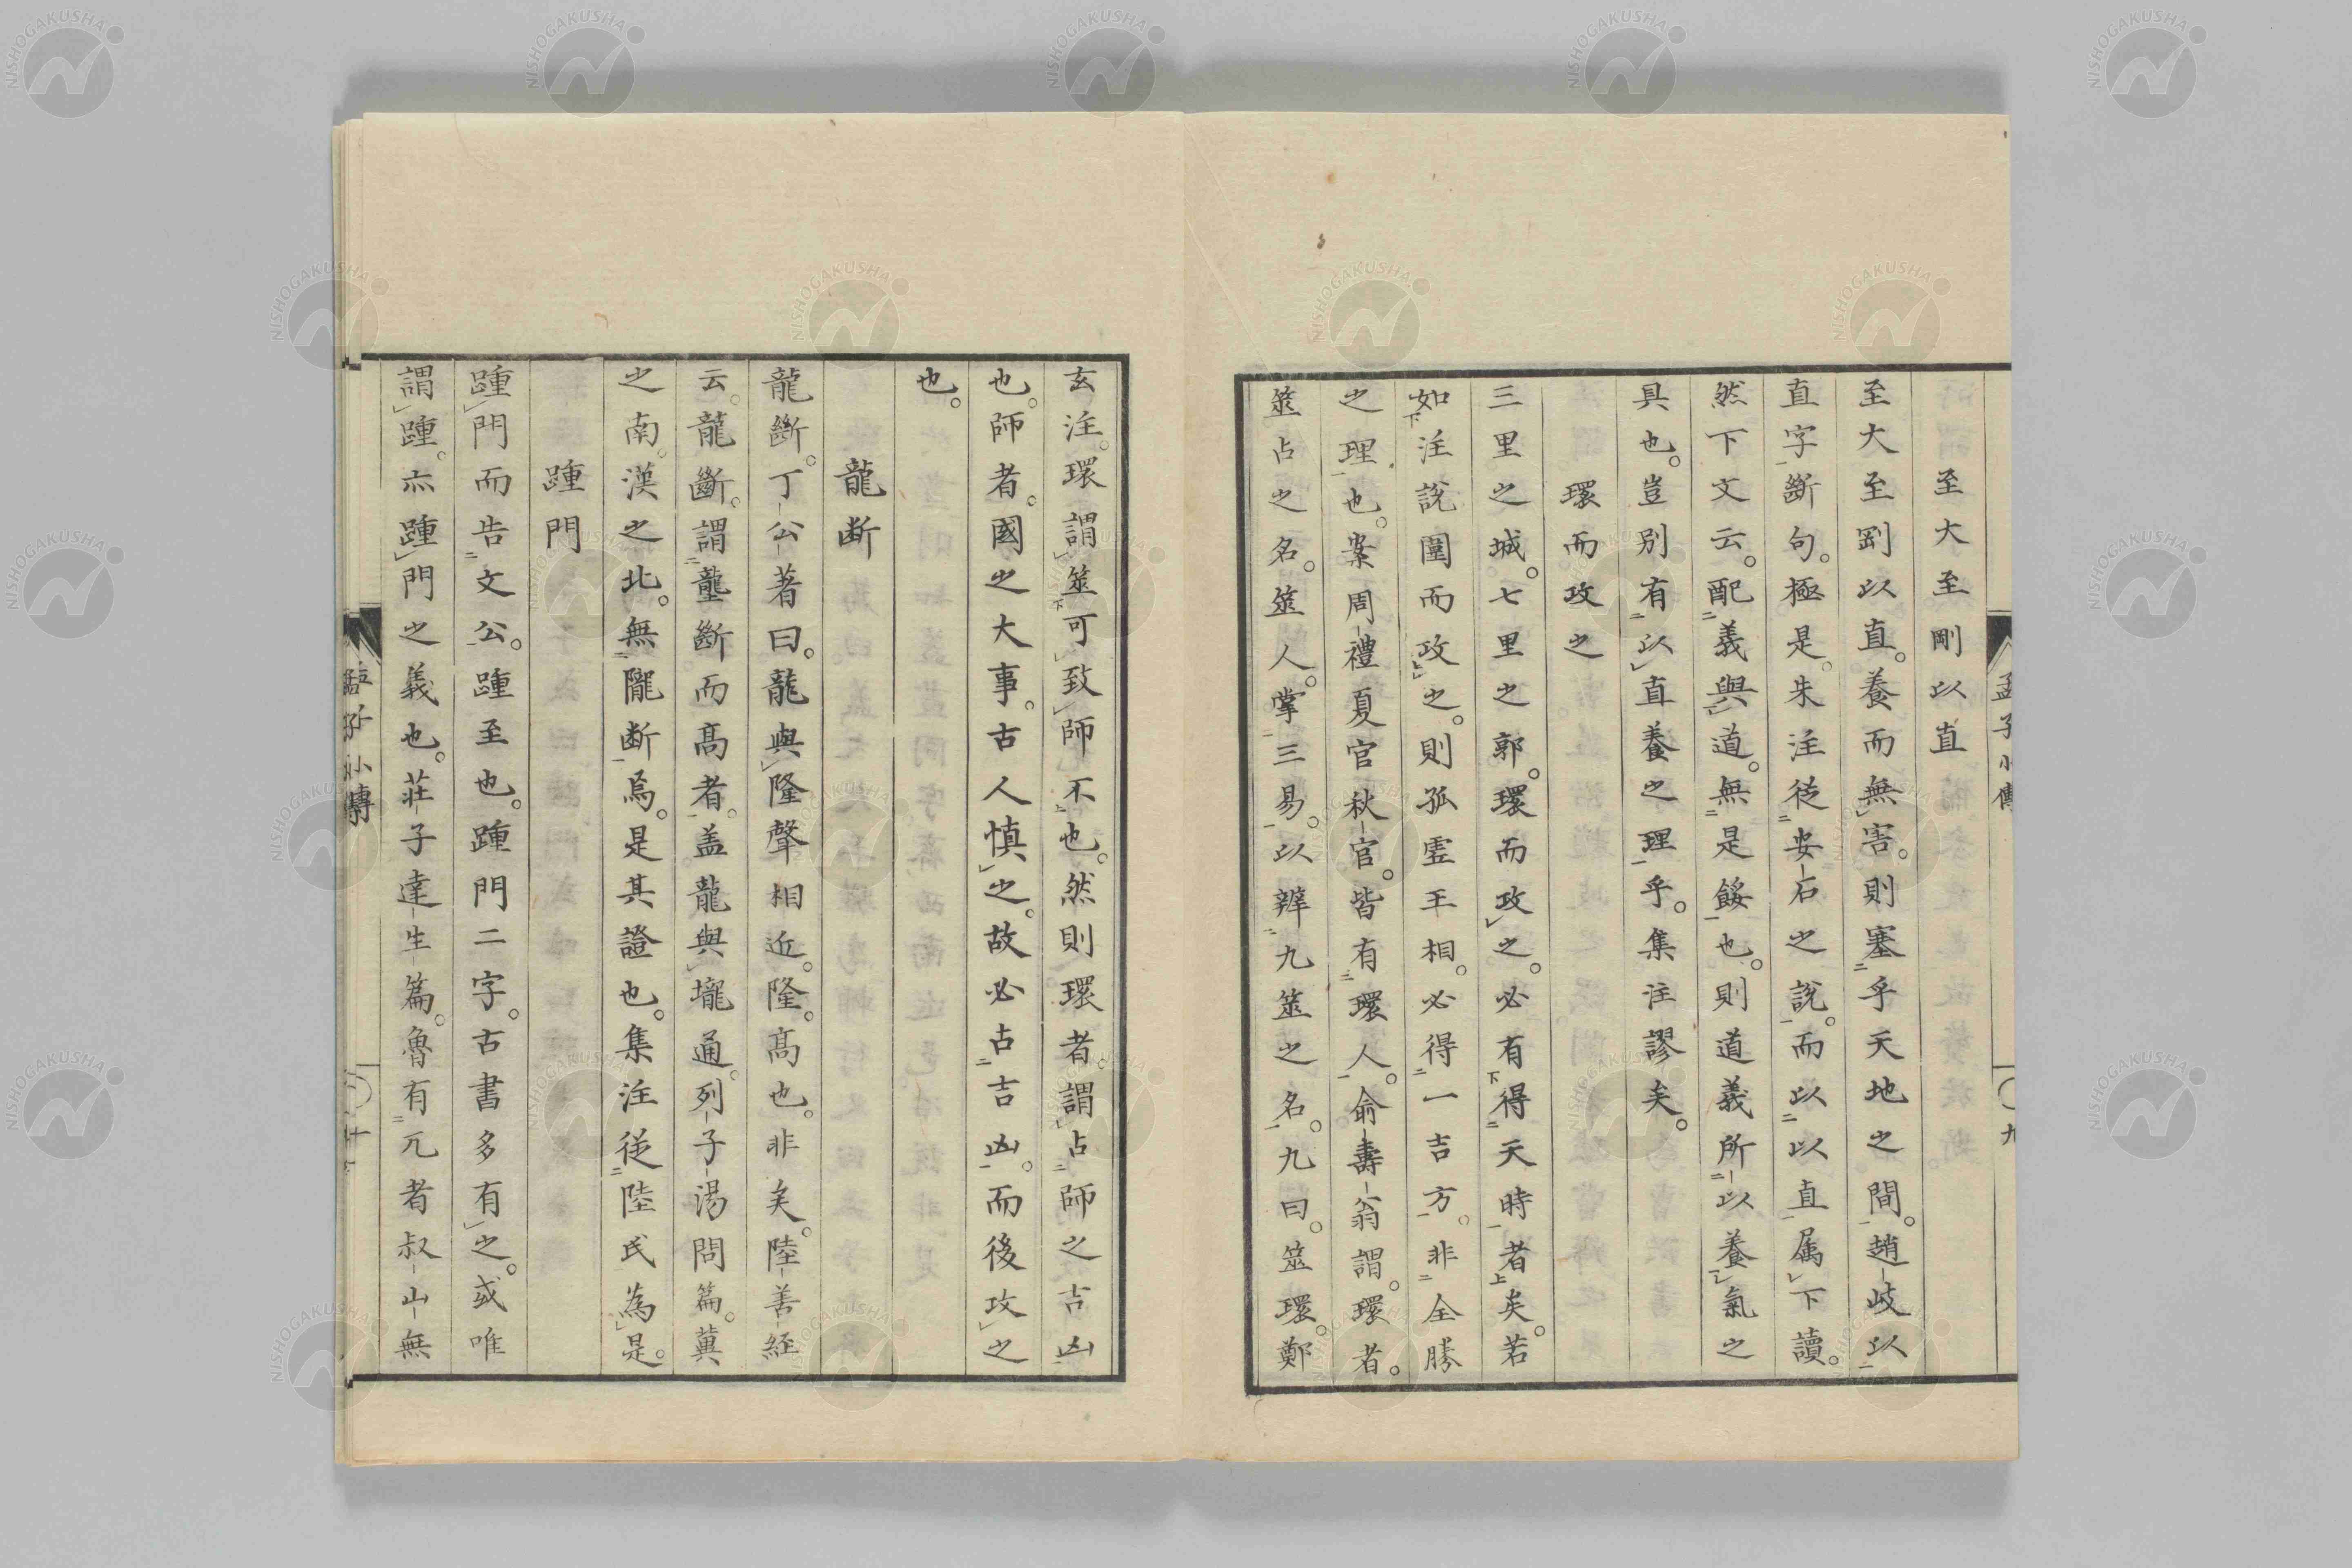 至大至剛以直
至大至剛以直。養而無害。則塞乎天地之間。趙岐以
直字斷句。極是。朱注從安石之說。而以以直属下讀。
然下文云。配義與道。無是餒也。則道義所以養氣之
具也。豈別有以直養之理乎。集注謬矣。
環而攻之
三里之城。七里之郭。環而攻之。必有得天時者矣。若
如注說圍而攻之。則孤虛王相。必得一吉方。非全勝
之理也。案周禮夏官秋官。皆有環人。俞壽翁謂。環者。
筮占之名。筮人。掌三易。以辨九筮之名。九曰。筮環。鄭
孟子小傳
九
玄注。環謂筮可致師不也。然則環者。謂占師之吉凶
也。師者。國之大事。古人慎之。故必占吉凶。而後攻之
也。
龍断
龍斷。丁公著曰。龍與隆聲相近。隆。高也。非矣。陸善経
云。龍斷。謂壟斷而髙者。盖龍與壠通。列子湯問篇。冀
之南。漢之北。無隴断焉。是其證也。集注從陸氏為是。
踵門
踵門而告文公。踵至也。踵門二字。古書多有之。或唯
謂踵。亦踵門之義也。莊子達生篇。魯有兀者叔山無
孟子小傳